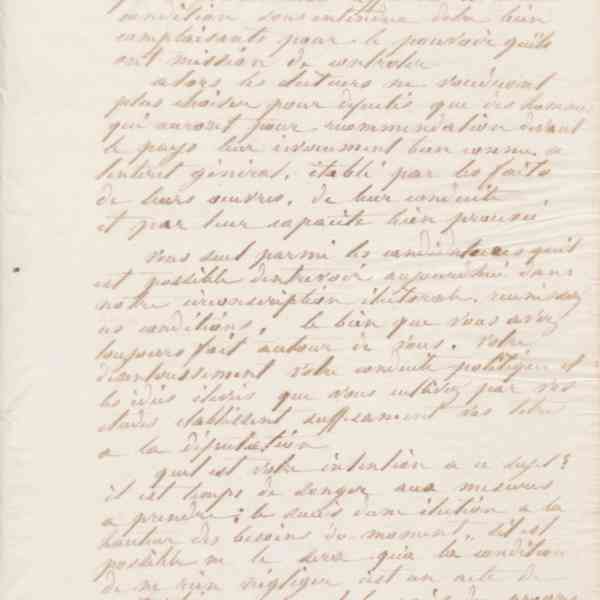 condition sous entendue d'etre bien
complaisants pour le pouvoir qu'ils
ont mission de controler
alors les electeurs ne voudront
plus choisir pour députés que des hommes
qui auront pour recommendation devant
le pays leur devouement bien connu a
linteret général, établi par les faits
de leurs œuvres, de leur conduite
et par leur capacité bien prouvée
Vous seul parmi les candidatures qu'il
est possible dentrevoir aujourdhui dans
notre circonscription électorale, reunissez
ces conditions, le bien que vous avez
toujours fait autour de vous, votre
desinteressement votre conduite politique et
les idées élevés que vous cultivez par vos
etudes etablissent suffisament vos titre
a la députation
quel est votre intention a ce sujet?
il est temps de songer aux mesures
a prendre; le succès d'une élection a la
hauteur des besoins du moment, s'il est
possible ne le sera qu'a la condition
de ne rien négliger est un acte de